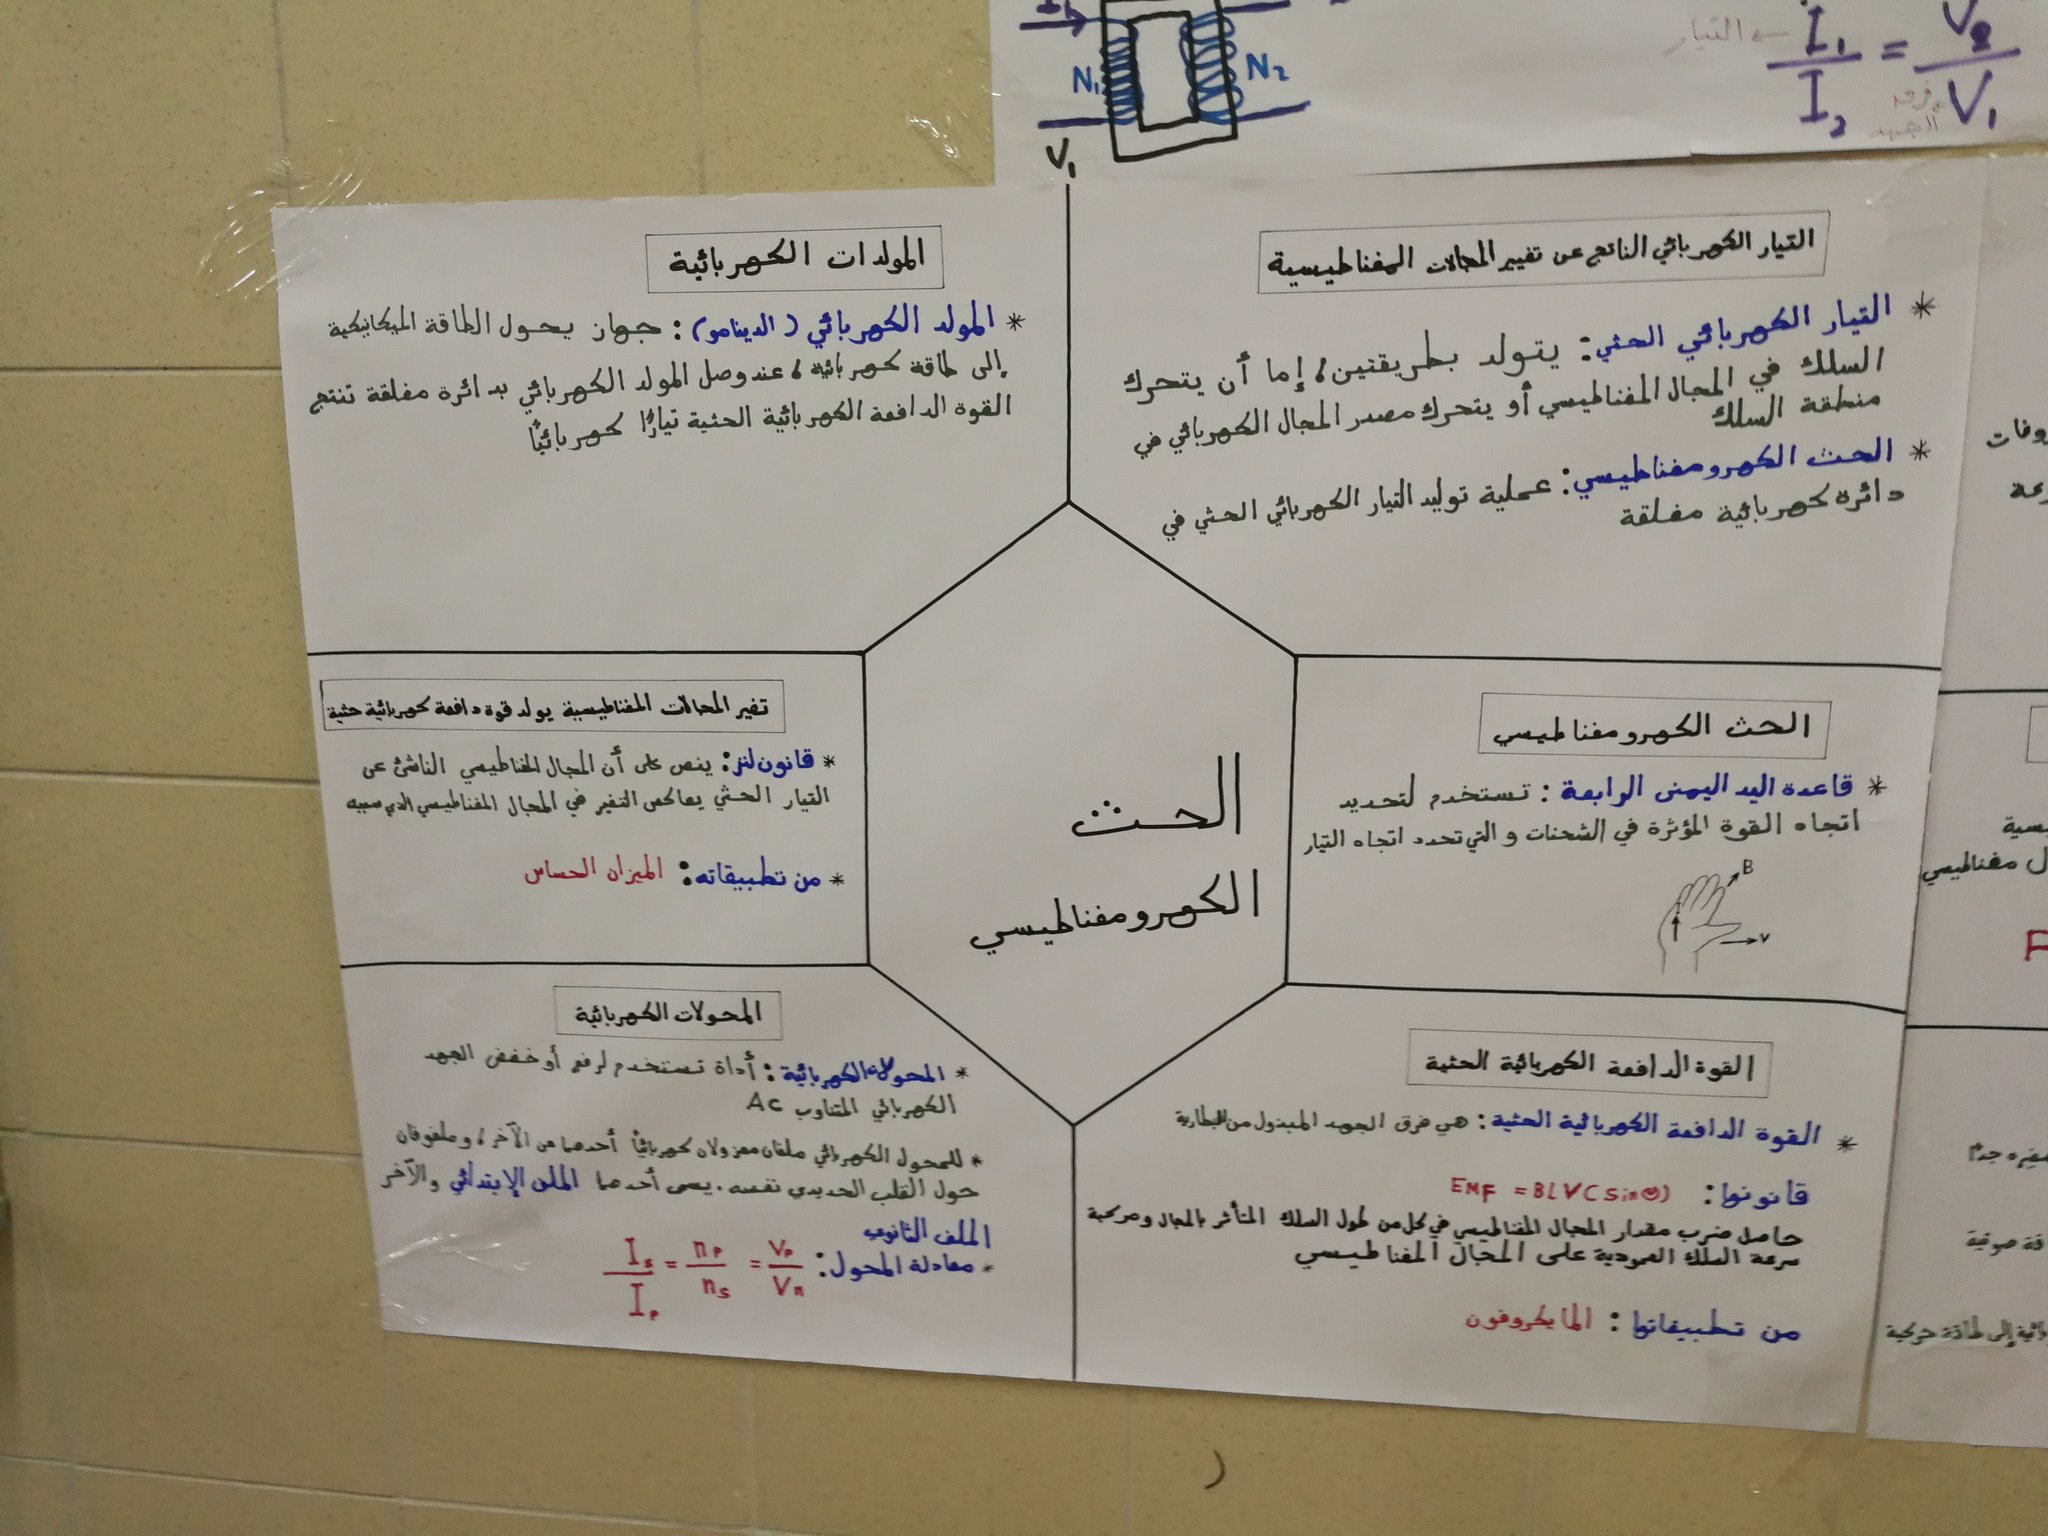 I₁
N₁
N₂
V₁
التيار
I₁ / I₂ = V₂ / V₁
فرق
الجهد
التيار الكهربائي الناتج عن تغيير المجالات المغناطيسية
* التيار الكهربائي الحثي: يتولد بطريقتين، إما أن يتحرك
السلك في المجال المغناطيسي أو يتحرك مصدر المجال الكهربائي في
منطقة السلك
* الحث الكهرومغناطيسي: عملية توليد التيار الكهربائي الحثي في
دائرة كهربائية مغلقة
المولدات الكهربائية
* المولد الكهربائي (الدينامو): جهاز يحول الطاقة الميكانيكية
إلى طاقة كهربائية، عند وصل المولد الكهربائي بدائرة مغلقة تنتج
القوة الدافعة الكهربائية الحثية تيارًا كهربائيًا
الحث الكهرومغناطيسي
* قاعدة اليد اليمنى الرابعة: تستخدم لتحديد
اتجاه القوة المؤثرة في الشحنات والتي تحدد اتجاه التيار
B
v
الحث
الكهرومغناطيسي
تغير المجالات المغناطيسية يولد قوة دافعة كهربائية حثية
* قانون لنز: ينص على أن المجال المغناطيسي الناشئ عن
التيار الحثي يعاكس التغير في المجال المغناطيسي الذي سببه
* من تطبيقاته: الميزان الحساس
القوة الدافعة الكهربائية الحثية
* القوة الدافعة الكهربائية الحثية: هي فرق الجهد المبذول من البطارية
قانونها: EMF = BLV(sinΘ)
حاصل ضرب مقدار المجال المغناطيسي في كل من طول السلك المتأثر بالمجال ومركبة
سرعة السلك العمودية على المجال المغناطيسي
من تطبيقاتها: المايكروفون
المحولات الكهربائية
* المحولات الكهربائية: أداة تستخدم لرفع أو خفض الجهد
الكهربائي المتناوب AC
* للمحول الكهربائي ملفان معزولان كهربائيًا أحدهما عن الآخر، وملفوفان
حول القلب الحديدي نفسه. يسمى أحدهما الملف الابتدائي والآخر
الملف الثانوي
* معادلة المحول: Is / Ip = np / ns = Vp / Vn
وفات
ل مغناطيسي
قة صوتية
ائية إلى طاقة حركية